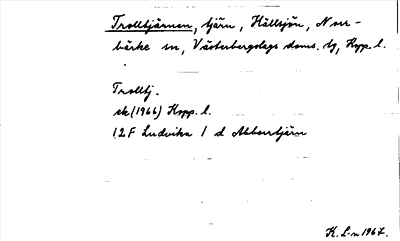 Trolltjärnen, tjärn, Hällsjön, Norr-
bärke sn, Västerbergslags doms. tg, Kopp. l.
Trolltj.
ek (1966) Kopp. l.
12F Ludvika 1 d Abborrtjärn
K. L-m 1967.